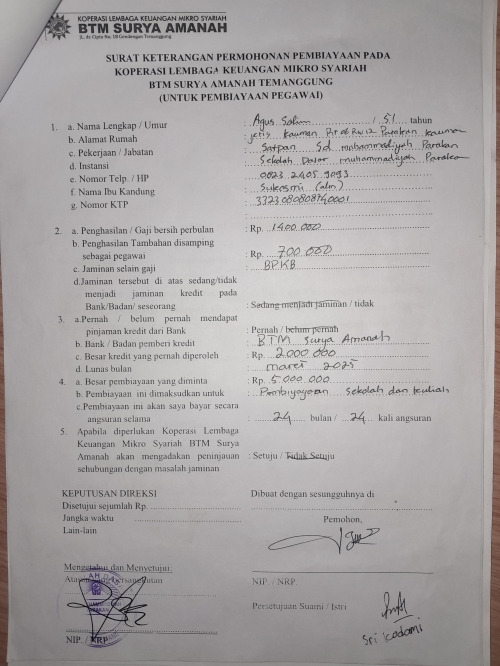 KOPERASI LEMBAGA KEUANGAN MIKRO SYARIAH
BTM SURYA AMANAH
SURAT KETERANGAN PERMOHONAN PEMBIAYAAN PADA
KOPERASI LEMBAGA KEUANGAN MIKRO SYARIAH
BTM SURYA AMANAH TEMANGGUNG
(UNTUK PEMBIAYAAN PEGAWAI)
1. a. Nama Lengkap / Umur : Agus Salim / 51 tahun
b. Alamat Rumah : Jetis Kauman Rw 12 Parakan Kauman
c. Pekerjaan / Jabatan : Satpan Sd muhammadiyah Parakan
d. Instansi : Sekolah Dasar muhammadiyah Parakan
e. Nomor Telp. / HP : 0023 2405 9093
f. Nama Ibu Kandung : Sukasmi (alm)
g. Nomor KTP :
2. a. Penghasilan / Gaji bersih perbulan : Rp. 1400.000
b. Penghasilan Tambahan disamping
sebagai pegawai : Rp. 700.000
c. Jaminan selain gaji : BPKB
d.Jaminan tersebut di atas sedang/tidak
menjadi jaminan kredit pada
Bank/Badan/ seseorang : Sedang menjadi jaminan / tidak
3. a.Pernah / belum pernah mendapat
pinjaman kredit dari Bank : Pernah / belum pernah
b. Bank / Badan pemberi kredit : BTM Surya Amanah
c. Besar kredit yang pernah diperoleh : Rp. 2000.000
d. Lunas bulan : maret 2025
4. a. Besar pembiayaan yang diminta : Rp. 5.000.000
b. Pembiayaan ini dimaksudkan untuk : Pembiyayaan Sekolah dan kuliah
c.Pembiayaan ini akan saya bayar secara
angsuran selama : 24 bulan / 24 kali angsuran
5. Apabila diperlukan Koperasi Lembaga
Keuangan Mikro Syariah BTM Surya
Amanah akan mengadakan peninjauan
sehubungan dengan masalah jaminan : Setuju / Tidak Setuju
KEPUTUSAN DIREKSI
Disetujui sejumlah Rp.
Jangka waktu
Lain-lain
Dibuat dengan sesungguhnya di
Pemohon,
Mengetahui dan Menyetujui:
Atasan yang bersangkutan
NIP. / NRP.
NIP. / NRP.
Persetujuan Suami / Istri
Sri Kadomi